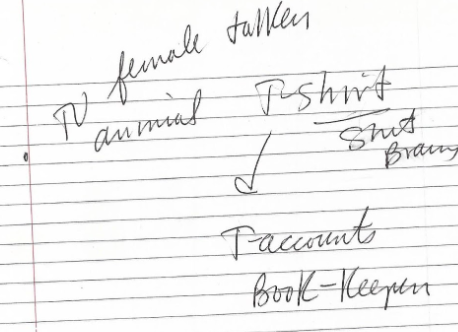 female talken
TV animial T-shirt
Shut
Brain
T-accounts
Book-Keepen